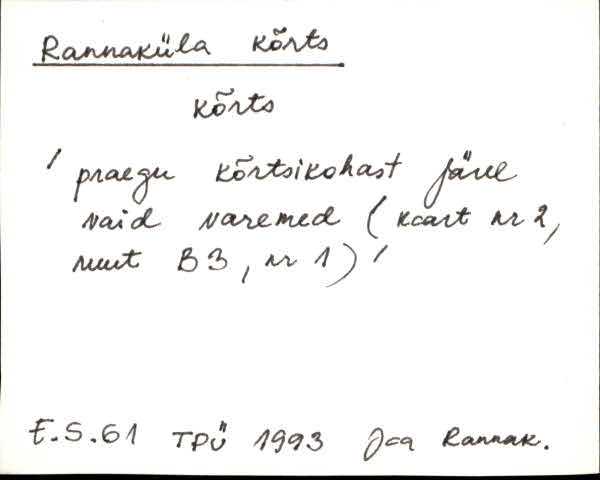 Rannaküla kõrts
kõrts
/ praegu kõrtsikohast järel
vaid varemed (kaart nr 2,
ruut B3, nr 1) /
E.S.61 TPÜ 1993 Jaa Rannak.